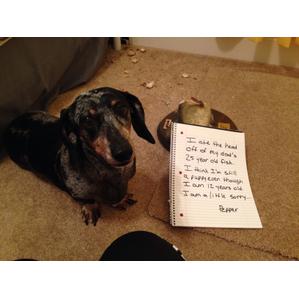 I ate the head
off of my dad's
25 year old fish.
I think I'm still
a puppy even though
I am 12 years old
I am a little sorry...
Pepper